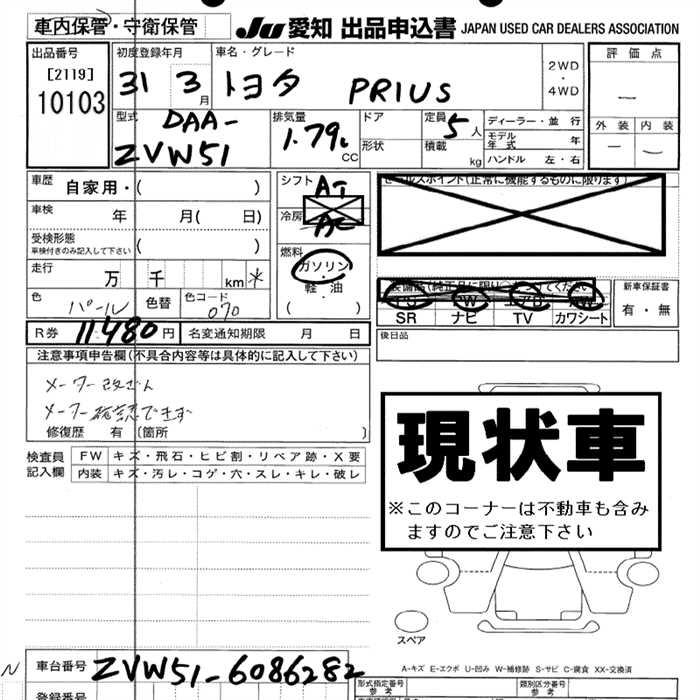 車内保管・守衛保管
JU 愛知 出品申込書 JAPAN USED CAR DEALERS ASSOCIATION
出品番号
[2119]
10103
初度登録年月
31 3月
車名・グレード
トヨタ PRIUS
2WD
・
4WD
評価点
―
外装 内装
― ―
型式
DAA-
ZVW51
排気量
1.79L
CC
ドア
形状
定員 5人
積載 kg
ディーラー・並行
モデル年式 年
ハンドル 左・右
車歴 自家用・( )
車検 年 月( 日)
受検形態
車検付きのみ記入して下さい ( )
走行 万 千 km *
色 パール 色替 色コード 070
シフト AT
冷房 AC
燃料
ガソリン
・
軽・油
( )
セールスポイント(正常に機能するものに限ります)
SR ナビ TV カワシート
新車保証書
有・無
R券 11480円 名変通知期限 月 日
後日品
注意事項申告欄(不具合内容等は具体的に記入して下さい)
メーター改ざん
メーター確認できず
修復歴 有 (箇所 )
検査員記入欄
FW キズ・飛石・ヒビ割・リペア跡・X要
内装 キズ・汚レ・コゲ・穴・スレ・キレ・破レ
現状車
※このコーナーは不動車も含み
ますのでご注意下さい
スペア
A-キズ E-エクボ U-凹み W-補修跡 S-サビ C-腐食 XX-交換済
N
車台番号 ZVW51-6086282
登録番号
型式指定番号
参考
類別区分番号
参考